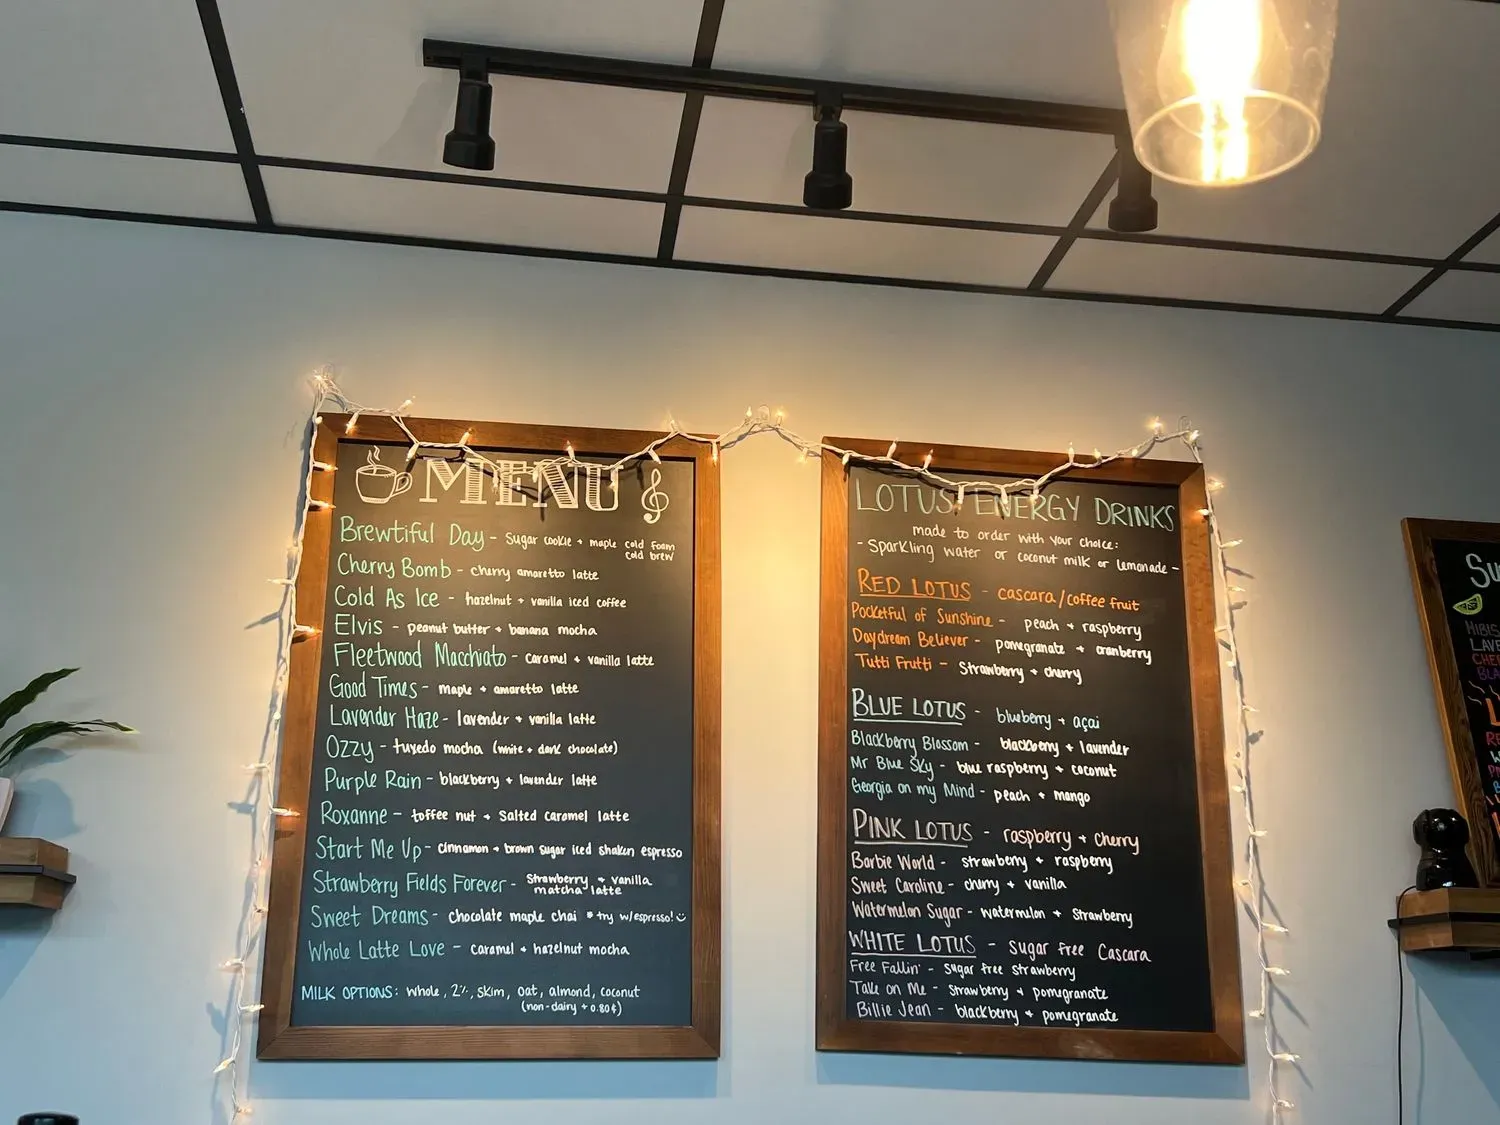 MENU
Brewtiful Day - Sugar cookie + maple cold foam
cold brew
Cherry Bomb - cherry amaretto latte
Cold As Ice - hazelnut + vanilla iced coffee
Elvis - peanut butter + banana mocha
Fleetwood Macchiato - caramel + vanilla latte
Good Times - maple + amaretto latte
Lavender Haze - lavender + vanilla latte
Ozzy - tuxedo mocha (white + dark chocolate)
Purple Rain - blackberry + lavender latte
Roxanne - toffee nut + Salted caramel latte
Start Me Up - cinnamon + brown sugar iced shaken espresso
Strawberry Fields Forever - Strawberry + vanilla
matcha latte
Sweet Dreams - chocolate maple chai * try w/espresso!
Whole Latte Love - caramel + hazelnut mocha
MILK OPTIONS: whole, 2%, skim, oat, almond, coconut
(non-dairy + 0.80¢)
LOTUS ENERGY DRINKS
made to order with your choice:
- Sparkling water or coconut milk or lemonade -
RED LOTUS - cascara/coffee fruit
Pocketful of Sunshine - peach + raspberry
Daydream Believer - pomegranate + cranberry
Tutti Frutti - Strawberry + cherry
BLUE LOTUS - blueberry + açai
Blackberry Blossom - blackberry + lavender
Mr Blue Sky - blue raspberry + coconut
Georgia on my Mind - peach + mango
PINK LOTUS - raspberry + cherry
Barbie World - strawberry + raspberry
Sweet Caroline - cherry + vanilla
Watermelon Sugar - watermelon + Strawberry
WHITE LOTUS - sugar free Cascara
Free Fallin' - sugar free strawberry
Take on Me - strawberry + pomegranate
Billie Jean - blackberry + pomegranate